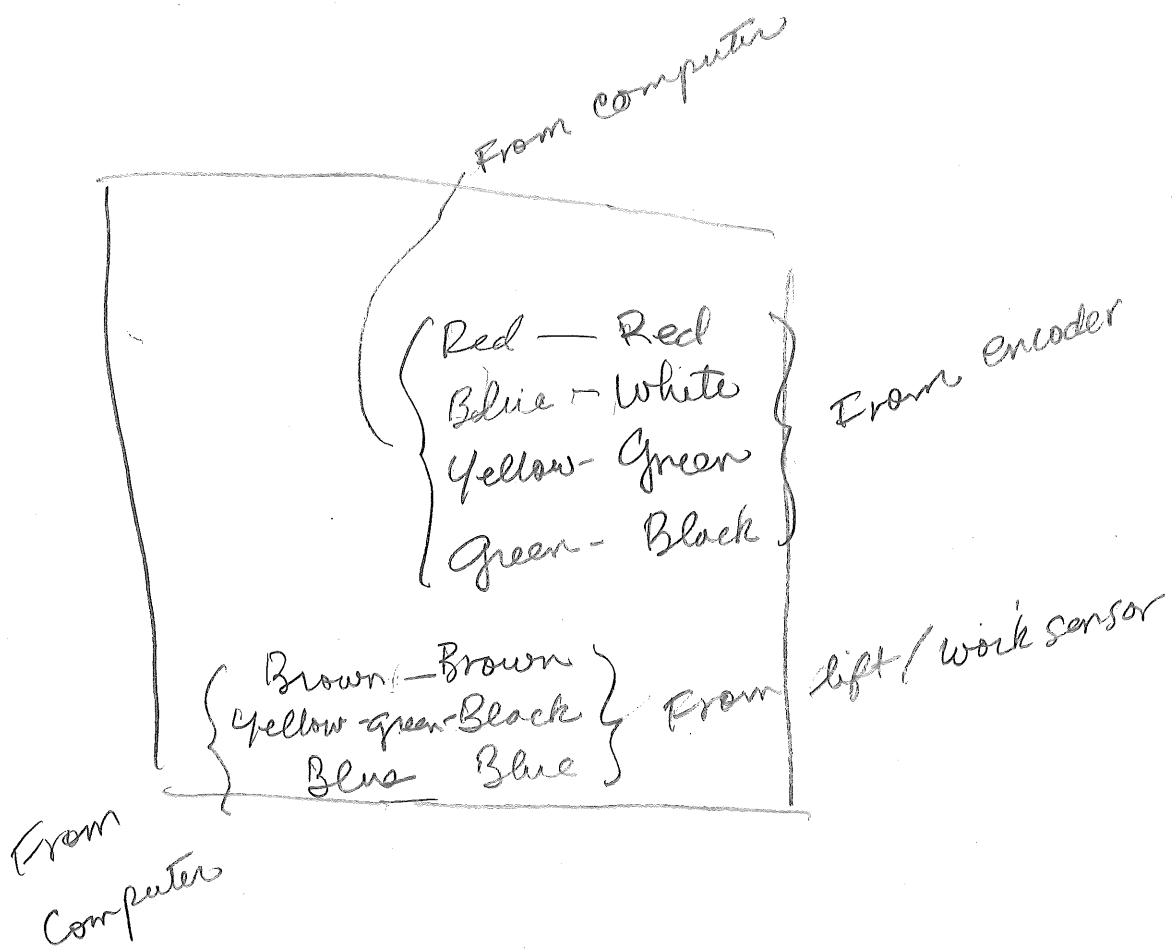 From computer
Red — Red
Blue - White
Yellow - Green
Green - Black
From encoder
Brown - Brown
Yellow-green-Black
Blue Blue
From lift/work sensor
From
Computer